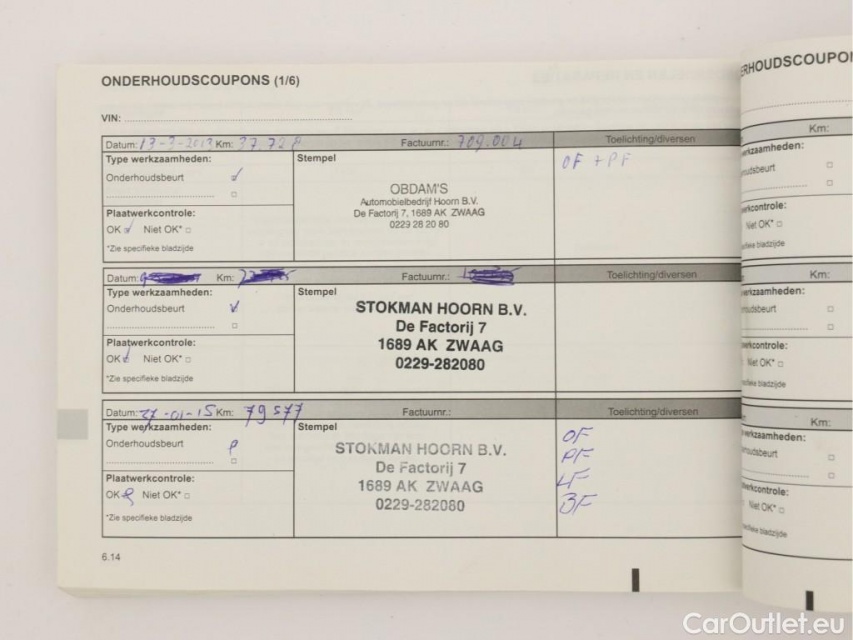 ONDERHOUDSCOUPONS (1/6)
VIN:
Datum: 13-3-2013 Km: 37728 Factuurnr.: 709.004 Toelichting/diversen
Type werkzaamheden:
Onderhoudsbeurt
Plaatwerkcontrole:
OK Niet OK*
*Zie specifieke bladzijde
Stempel
OBDAM'S
Automobielbedrijf Hoorn B.V.
De Factorij 7, 1689 AK ZWAAG
0229 28 20 80
OF + PF
Datum: Km: Factuurnr.: Toelichting/diversen
Type werkzaamheden:
Onderhoudsbeurt
Plaatwerkcontrole:
OK Niet OK*
*Zie specifieke bladzijde
Stempel
STOKMAN HOORN B.V.
De Factorij 7
1689 AK ZWAAG
0229-282080
Datum: 27-01-15 Km: 79577 Factuurnr.: Toelichting/diversen
Type werkzaamheden:
Onderhoudsbeurt
Plaatwerkcontrole:
OK Niet OK*
*Zie specifieke bladzijde
Stempel
STOKMAN HOORN B.V.
De Factorij 7
1689 AK ZWAAG
0229-282080
OF
PF
LF
BF
6.14
ERHOUDSCOUPO
Km:
kzaamheden:
udsbeurt
rkcontrole:
Niet OK*
ieke bladzijde
Km:
kzaamheden:
dsbeurt
rkcontrole:
Niet OK*
ieke bladzijde
Km:
kzaamheden:
dsbeurt
kcontrole:
Niet OK*
ieke bladzijde
CarOutlet.eu